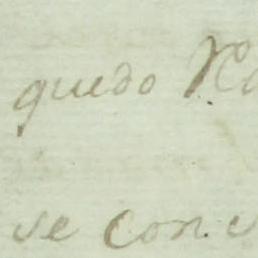 quedo
se con